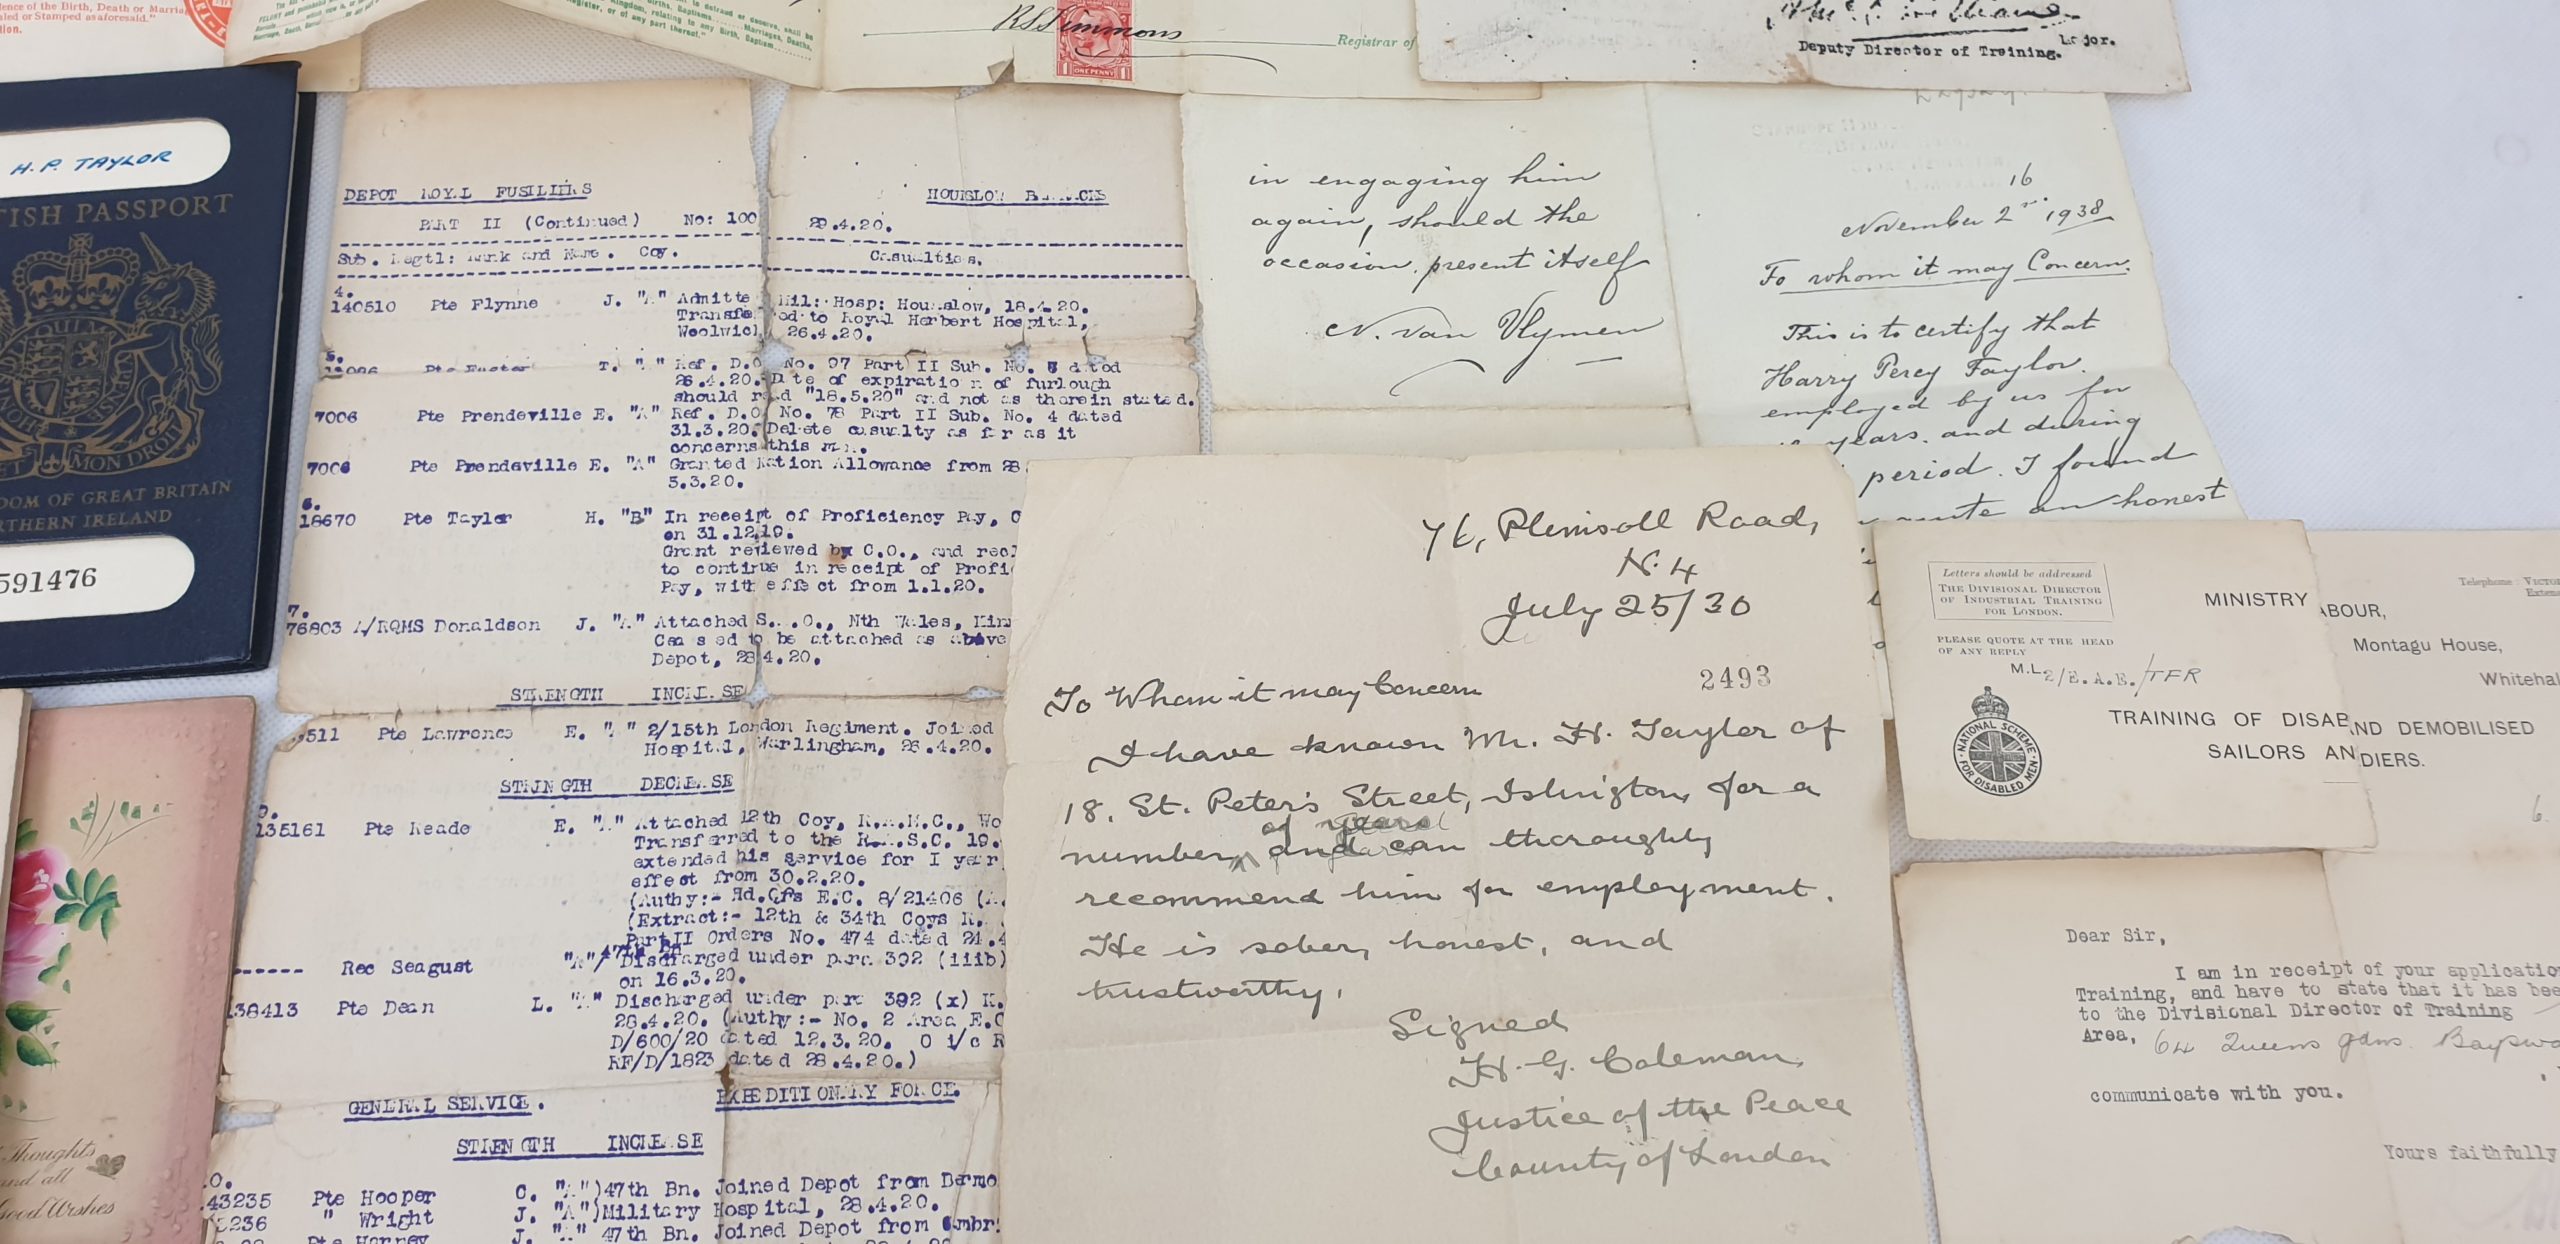 ence of the Birth, Death or Marria
led or Stamped as aforesaid."
tion.
R.S. Simmons
ONE PENNY
Registrar of
Major.
Deputy Director of Training.
H.P. TAYLOR
TISH PASSPORT
MON DROIT
DOM OF GREAT BRITAIN
RTHERN IRELAND
591476
Thoughts
and all
Good Wishes
DEPOT ROYAL FUSILIERS HOUNSLOW BARRACKS
PART II (Continued) No: 100 29.4.20.
Sub. Regtl: Rank and Name. Coy. Casualties.
4.
140510 Pte Flynne J. "A" Admitte Mil: Hosp: Hounslow, 18.4.20.
Transfe ed to Royal Herbert Hospital,
Woolwich, 26.4.20.
5.
T. " " Ref. D.O. No. 97 Part II Sub. No. dated
26.4.20. Date of expiration of furlough
should read "18.5.20" and not as therein stated.
7006 Pte Prendeville E. "A" Ref. D.O. No. 78 Part II Sub. No. 4 dated
31.3.20. Delete casualty as far as it
concerns this man.
7006 Pte Prendeville E. "A" Granted Ration Allowance from 28
5.3.20.
6.
18670 Pte Taylor H. "B" In receipt of Proficiency Pay, C
on 31.12.19.
Grant reviewed by C.O., and rec
to continue in receipt of Profi
Pay, with effect from 1.1.20.
7.
76803 A/RQMS Donaldson J. "A" Attached S. .O., Nth Wales,
Ceased to be attached as above
Depot, 28.4.20.
STRENGTH INCREASE
511 Pte Lawrence E. " " 2/15th London Regiment. Joined
Hospital, Warlingham, 26.4.20.
STRENGTH DECREASE
9.
135161 Pte Reade E. "A" Attached 12th Coy, R.A.M.C., Wo
Transferred to the R.A.S.C. 19.
extended his service for I year
effect from 30.2.20.
(Authy:- Hd.Qrs E.C. 8/21406 (A.
(Extract:- 12th & 34th Coys R.
Part II Orders No. 474 dated 24.4
47th Bn
------ Rec Seagust "A"/ Discharged under para 392 (iiib)
on 16.3.20.
138413 Pte Dean L. "A" Discharged under para 392 (x) K.
28.4.20. (Authy:- No. 2 Area E.C
D/600/20 dated 12.3.20. O i/c R
RF/D/1823 dated 28.4.20.)
GENERAL SERVICE. EXPEDITIONARY FORCE.
STRENGTH INCREASE
10.
43235 Pte Hooper C. "A") 47th Bn. Joined Depot from Bermo
3236 " Wright J. "A") Military Hospital, 28.4.20.
Pte Harney J. "A" 47th Bn. Joined Depot from Cambr
in engaging him
again, should the
occasion, present itself
N. Van Vlymen
16
November 2nd. 1938
To whom it may Concern.
This is to certify that
Harry Percy Taylor.
employed by us for
years. and during
period. I found
quite an honest
76, Plimsoll Road,
N. 4
July 25/30
2493
To Whom it may Concern
I have known Mr. H. Taylor of
18. St. Peter's Street, Islington, for a
of years
number, and can thoroughly
recommend him for employment.
He is sober, honest, and
trustworthy.
Signed
H. G. Coleman
Justice of the Peace
County of London
Letters should be addressed
THE DIVISIONAL DIRECTOR
OF INDUSTRIAL TRAINING
FOR LONDON.
PLEASE QUOTE AT THE HEAD
OF ANY REPLY
M.L 2/E.A.E./TFR
NATIONAL SCHEME
FOR DISABLED MEN
MINISTRY
TRAINING OF DISAB
SAILORS AN
Telephone: VICTO
Exten
ABOUR,
Montagu House,
Whitehal
ND DEMOBILISED
DIERS.
6.
Dear Sir,
I am in receipt of your applicatio
Training, and have to state that it has bee
to the Divisional Director of Training
Area, 64 Queens gdns. Baysw
communicate with you.
Yours faithfully